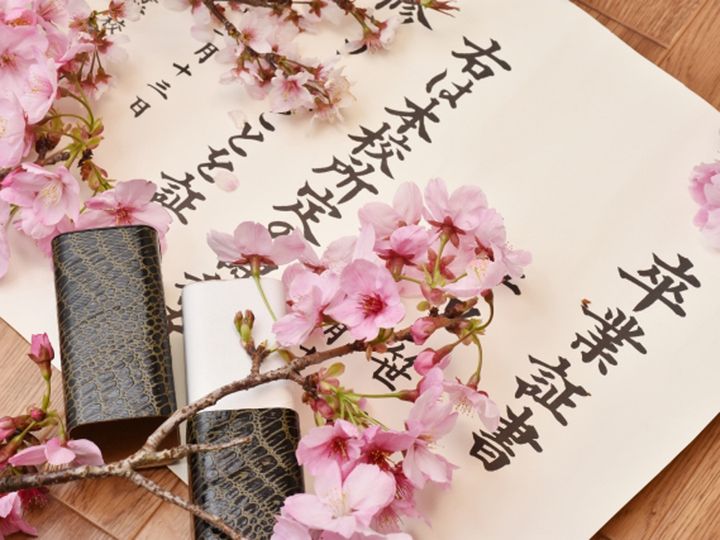 卒業証書
笹
右は本校所定の
修
ことを証
月十三日